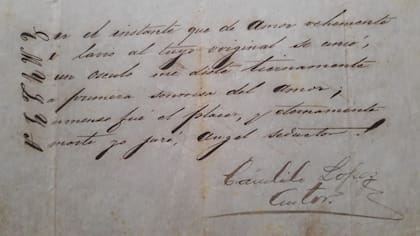 En el instante que de amor vehemente
Mi lavio al tuyo original se unió,
I un osculo me diste tiernamente
La primera sonrisa del amor;
Inmenso fué el placer, y eternamente
Amarte yo juré, angel seductor!
Cándido López
Autor.